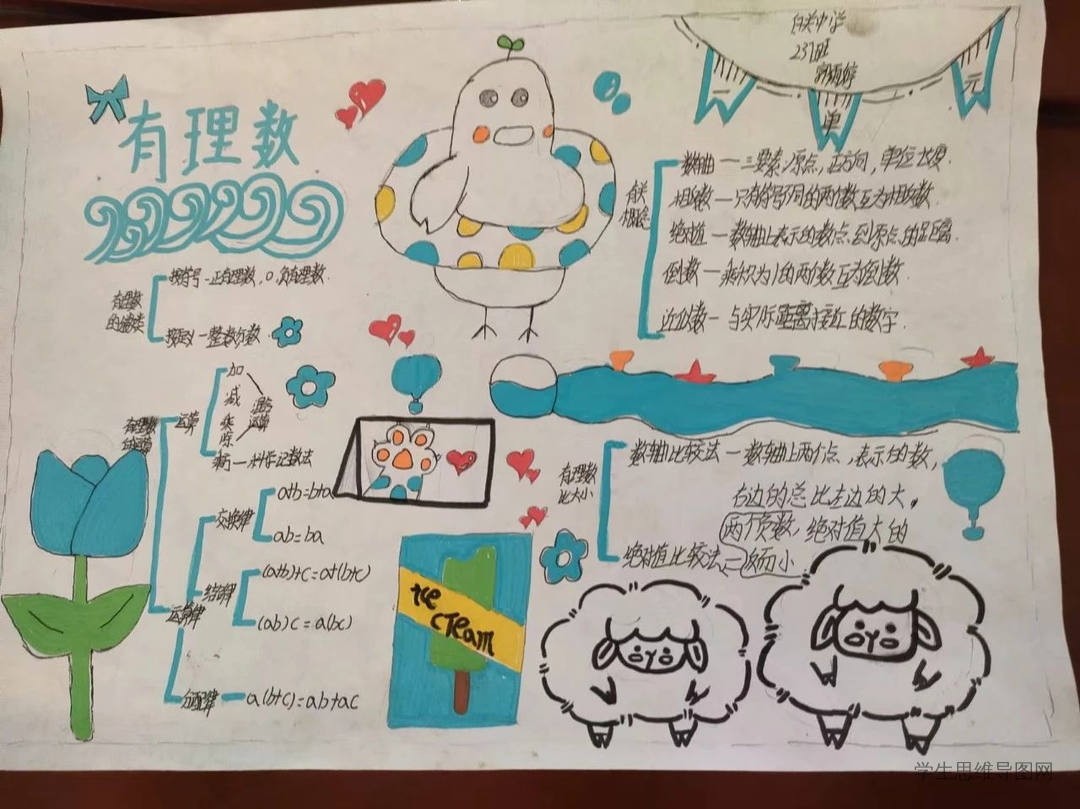 有理数
白关中学
231班
第
一
单
元
有理数
的分类
按符号-正有理数,0,负有理数.
按定义-整数分数
有理数
的运算
运算
加
减
乘
除
混合
运算
乘方-科学记数法
运算律
交换律
a+b=b+a
ab=ba
结合律
(a+b)+c=a+(b+c)
(ab)c=a(bc)
分配律-a(b+c)=ab+ac
Ice
cream
有关
概念
数轴-三要素:原点,正方向,单位长度.
相反数-只有符号不同的两个数互为相反数.
绝对值-数轴上表示的数点到原点的距离.
倒数-乘积为1的两个数互为倒数.
近似数-与实际距离接近的数字.
有理数
比大小
数轴比较法-数轴上两个点,表示的数,
右边的总比左边的大。
两个负数,绝对值大的
绝对值比较法-反而小
学生思维导图网